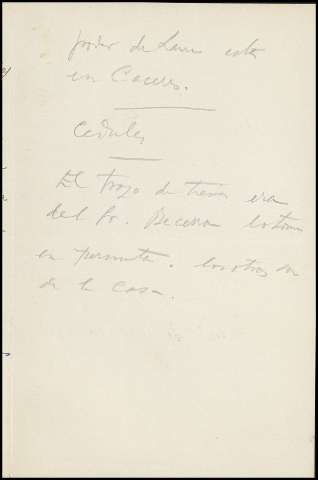 poder de Luis esta
en Caceres.
Cedulas
El trozo de tierra era
del Sr. Becerra lo tomo
en permuta. los otros son
de la Casa.